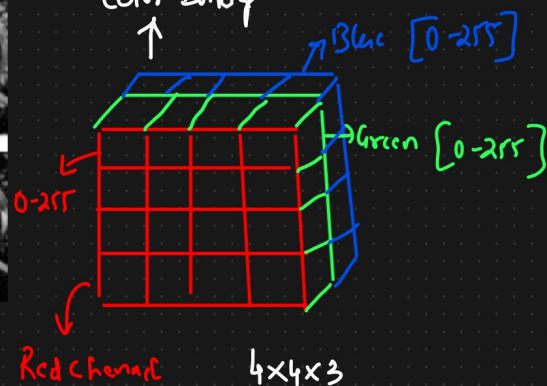 Blue [0-255]
Green [0-255]
0-255
Red Channel
4x4x3